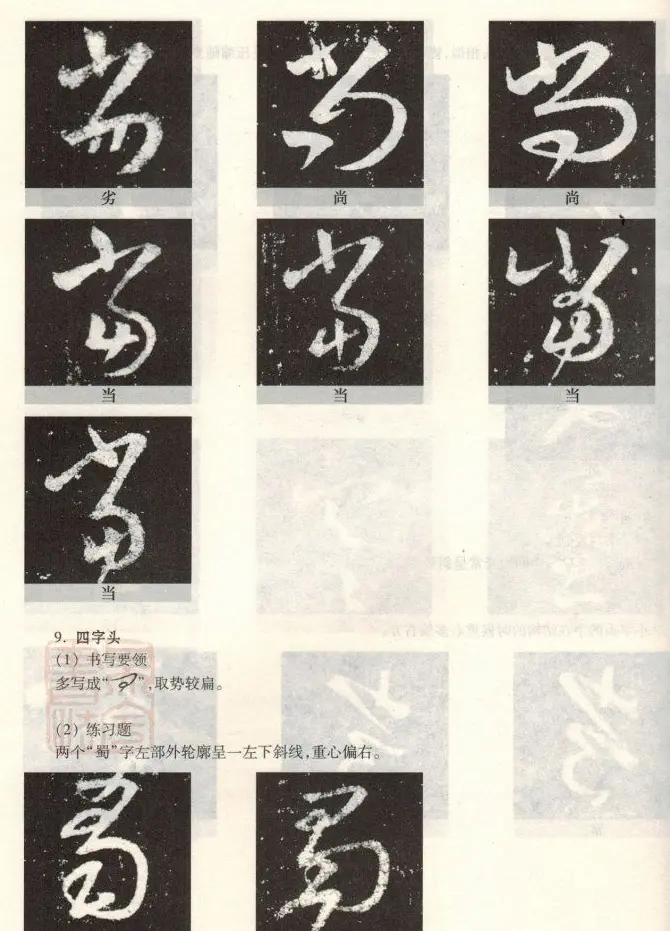 劣 尚 尚
当 当 当
当
9. 四字头
(1) 书写要领
多写成“ ”,取势较扁。
(2) 练习题
两个“蜀”字左部外轮廓呈一左下斜线,重心偏右。